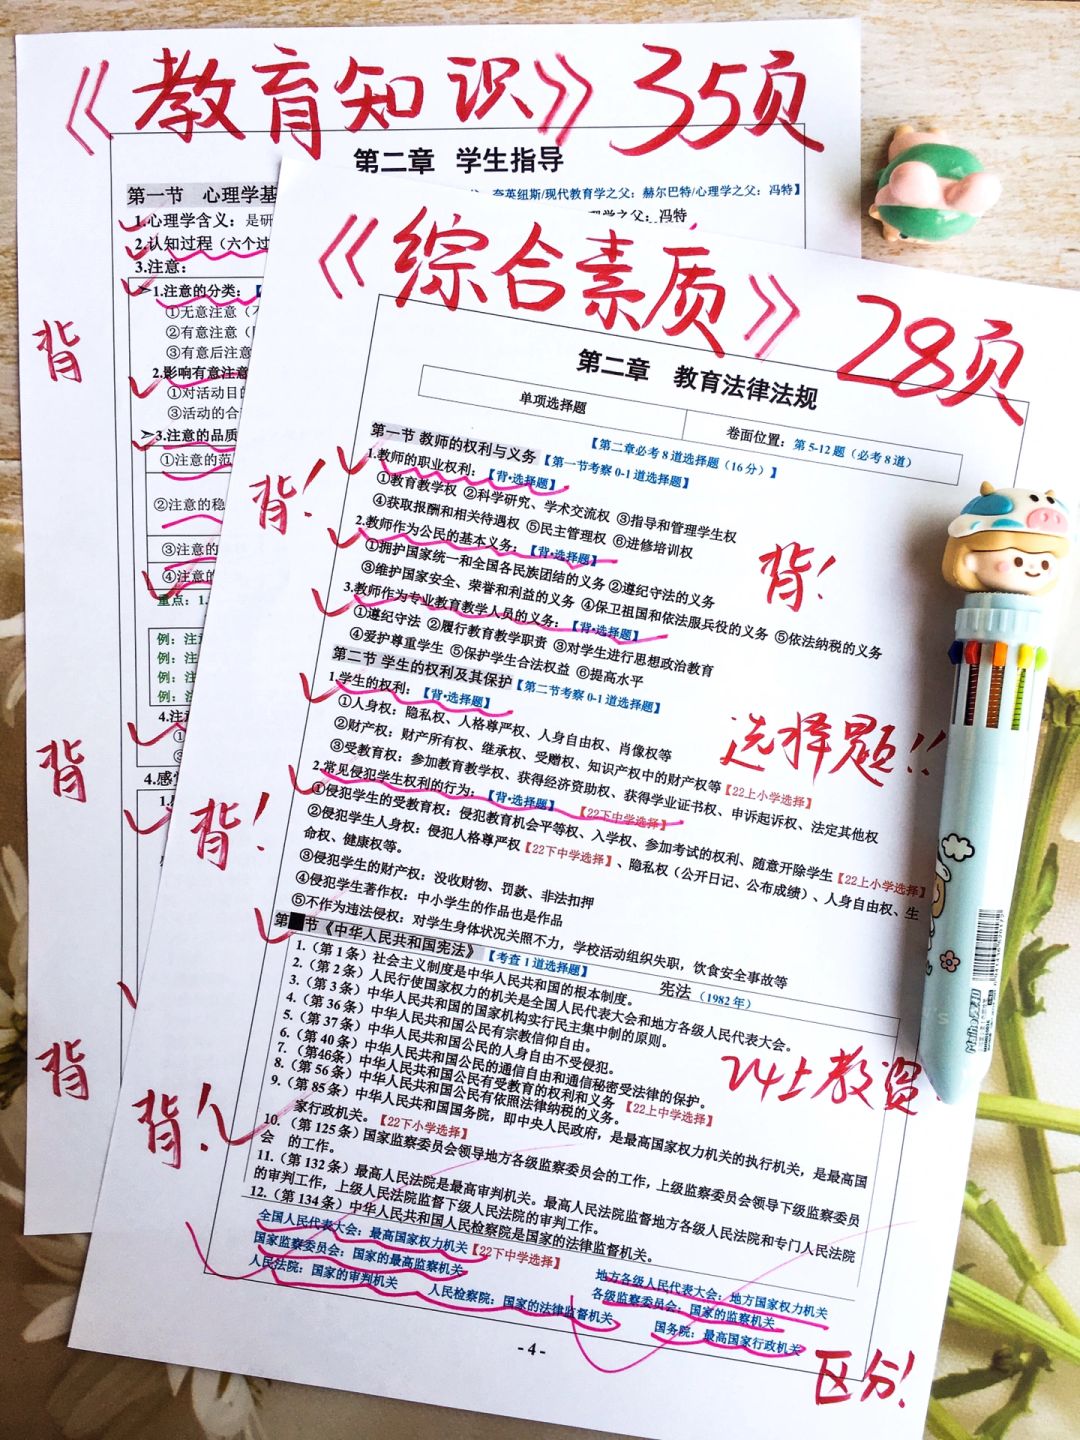 《教育知识》35页
第二章 学生指导
第一节 心理学基
夸英纽斯/现代教育学之父：赫尔巴特/心理学之父：冯特】
1.心理学含义：是研
理学之父：冯特
2.认知过程（六个过
3.注意：
➢1.注意的分类：【
①无意注意（
②有意注意（
③有意后注意
2.影响有意注意
①对活动目的
③活动的合
➢3.注意的品质
①注意的范
②注意的稳
③注意的
④注意的
重点：1.
例：注意
例：注
例：注
例：注
4.注意
①
③
4.感
背
背
背
《综合素质》28页
第二章 教育法律法规
单项选择题
卷面位置：第 5-12 题（必考 8 道）
【第二章必考 8 道选择题（16 分）】
第一节 教师的权利与义务【第一节考察 0-1 道选择题】
1.教师的职业权利：【背·选择题】
①教育教学权 ②科学研究、学术交流权 ③指导和管理学生权
④获取报酬和相关待遇权 ⑤民主管理权 ⑥进修培训权
2.教师作为公民的基本义务：【背·选择题】
①拥护国家统一和全国各民族团结的义务 ②遵纪守法的义务
③维护国家安全、荣誉和利益的义务 ④保卫祖国和依法服兵役的义务 ⑤依法纳税的义务
3.教师作为专业教育教学人员的义务：【背·选择题】
①遵纪守法 ②履行教育教学职责 ③对学生进行思想政治教育
④爱护尊重学生 ⑤保护学生合法权益 ⑥提高水平
第二节 学生的权利及其保护【第二节考察 0-1 道选择题】
1.学生的权利：【背·选择题】
①人身权：隐私权、人格尊严权、人身自由权、肖像权等
②财产权：财产所有权、继承权、受赠权、知识产权中的财产权等【22上小学选择】
③受教育权：参加教育教学权、获得经济资助权、获得学业证书权、申诉起诉权、法定其他权
2.常见侵犯学生权利的行为：【背·选择题】【22下中学选择】
①侵犯学生的受教育权：侵犯教育机会平等权、入学权、参加考试的权利、随意开除学生【22上小学选择】
②侵犯学生人身权：侵犯人格尊严权【22下中学选择】、隐私权（公开日记、公布成绩）、人身自由权、生
命权、健康权等。
③侵犯学生的财产权：没收财物、罚款、非法扣押
④侵犯学生著作权：中小学生的作品也是作品
⑤不作为违法侵权：对学生身体状况关照不力，学校活动组织失职，饮食安全事故等
第 节《中华人民共和国宪法》【考查 1 道选择题】
宪法（1982 年）
1.（第 1 条）社会主义制度是中华人民共和国的根本制度。
2.（第 2 条）人民行使国家权力的机关是全国人民代表大会和地方各级人民代表大会。
3.（第 3 条）中华人民共和国的国家机构实行民主集中制的原则。
4.（第 36 条）中华人民共和国公民有宗教信仰自由。
5.（第 37 条）中华人民共和国公民的人身自由不受侵犯。
6.（第 40 条）中华人民共和国公民的通信自由和通信秘密受法律的保护。
7.（第46条）中华人民共和国公民有受教育的权利和义务【22上中学选择】
8.（第 56 条）中华人民共和国公民有依照法律纳税的义务。
9.（第 85 条）中华人民共和国国务院，即中央人民政府，是最高国家权力机关的执行机关，是最高国
家行政机关。【22下小学选择】
10.（第 125 条）国家监察委员会领导地方各级监察委员会的工作，上级监察委员会领导下级监察委员
会 的工作。
11.（第 132 条）最高人民法院是最高审判机关。最高人民法院监督地方各级人民法院和专门人民法院
的审判工作，上级人民法院监督下级人民法院的审判工作。
12.（第 134 条）中华人民共和国人民检察院是国家的法律监督机关。
全国人民代表大会：最高国家权力机关【22下中学选择】
地方各级人民代表大会：地方国家权力机关
国家监察委员会：国家的最高监察机关
各级监察委员会：国家的监察机关
人民法院：国家的审判机关
人民检察院：国家的法律监督机关
国务院：最高国家行政机关
- 4 -
背！
背！
选择题！！
背！
24上教资
背！
区分！